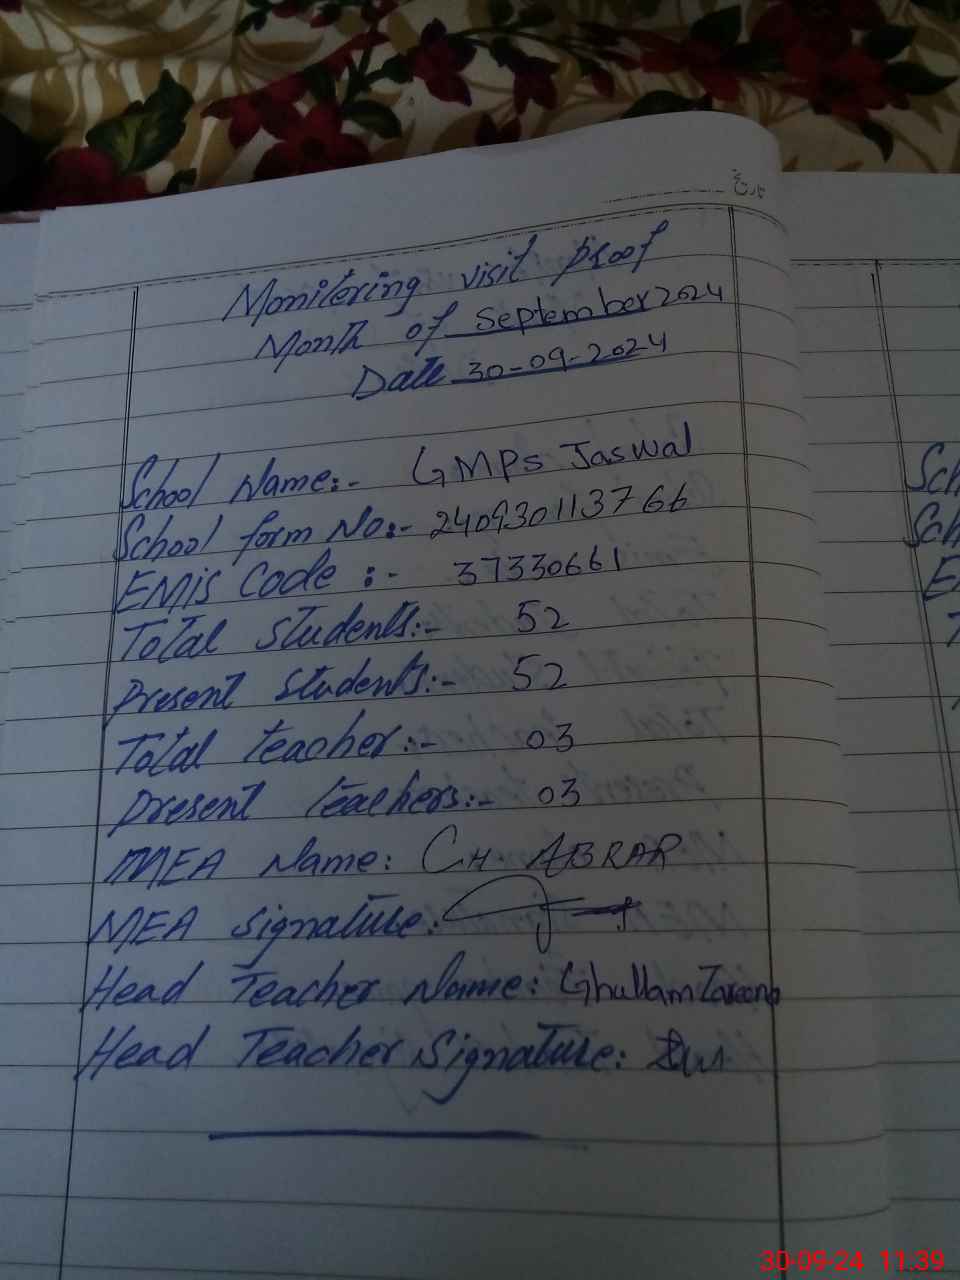 تاریخ
Monitering visit proof
Month of September 2024
Date 30-09-2024
School Name:- GMPs Jaswal
School form No:- 240930113766
EMIS Code :- 37330661
Total Students:- 52
Present Students:- 52
Total teacher:- 03
Present teachers:- 03
MEA Name: CH ABRAR
MEA Signature:
Head Teacher Name: Ghullam
Head Teacher Signature:
Sch
Sch
E
T
30-09-24 11:39